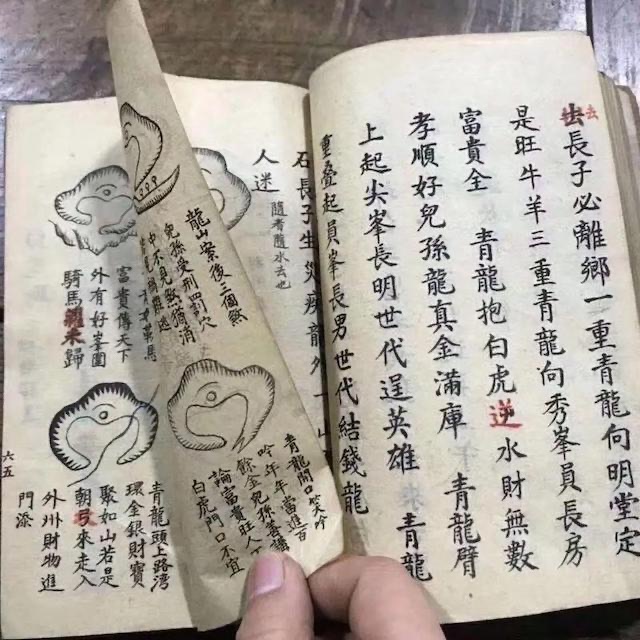 去長子必離鄉一重青龍向明堂定
是旺牛羊三重青龍向秀峯員長房
富貴全 青龍抱白虎逆水財無數
孝順好兒孫龍真金滿庫 青龍臂
上起尖峯長明世代逞英雄 青龍
重叠起員峯長男世代結錢龍
石長子生災 龍外一山
人迷 隨香隨水去也
龍山案後三個缺
兒孫受刑罰穴
中不見缺猶消
青龍開口笑吟
吟年年當進百
餘金兒孫善講
論富貴旺人丁
白虎門口不宜
富貴傳天下
外有好峯圍
騎馬 來歸
青龍頭上路湾
環金銀財寶
聚如山若是
朝弓來走入
外州財物進
門添
六五